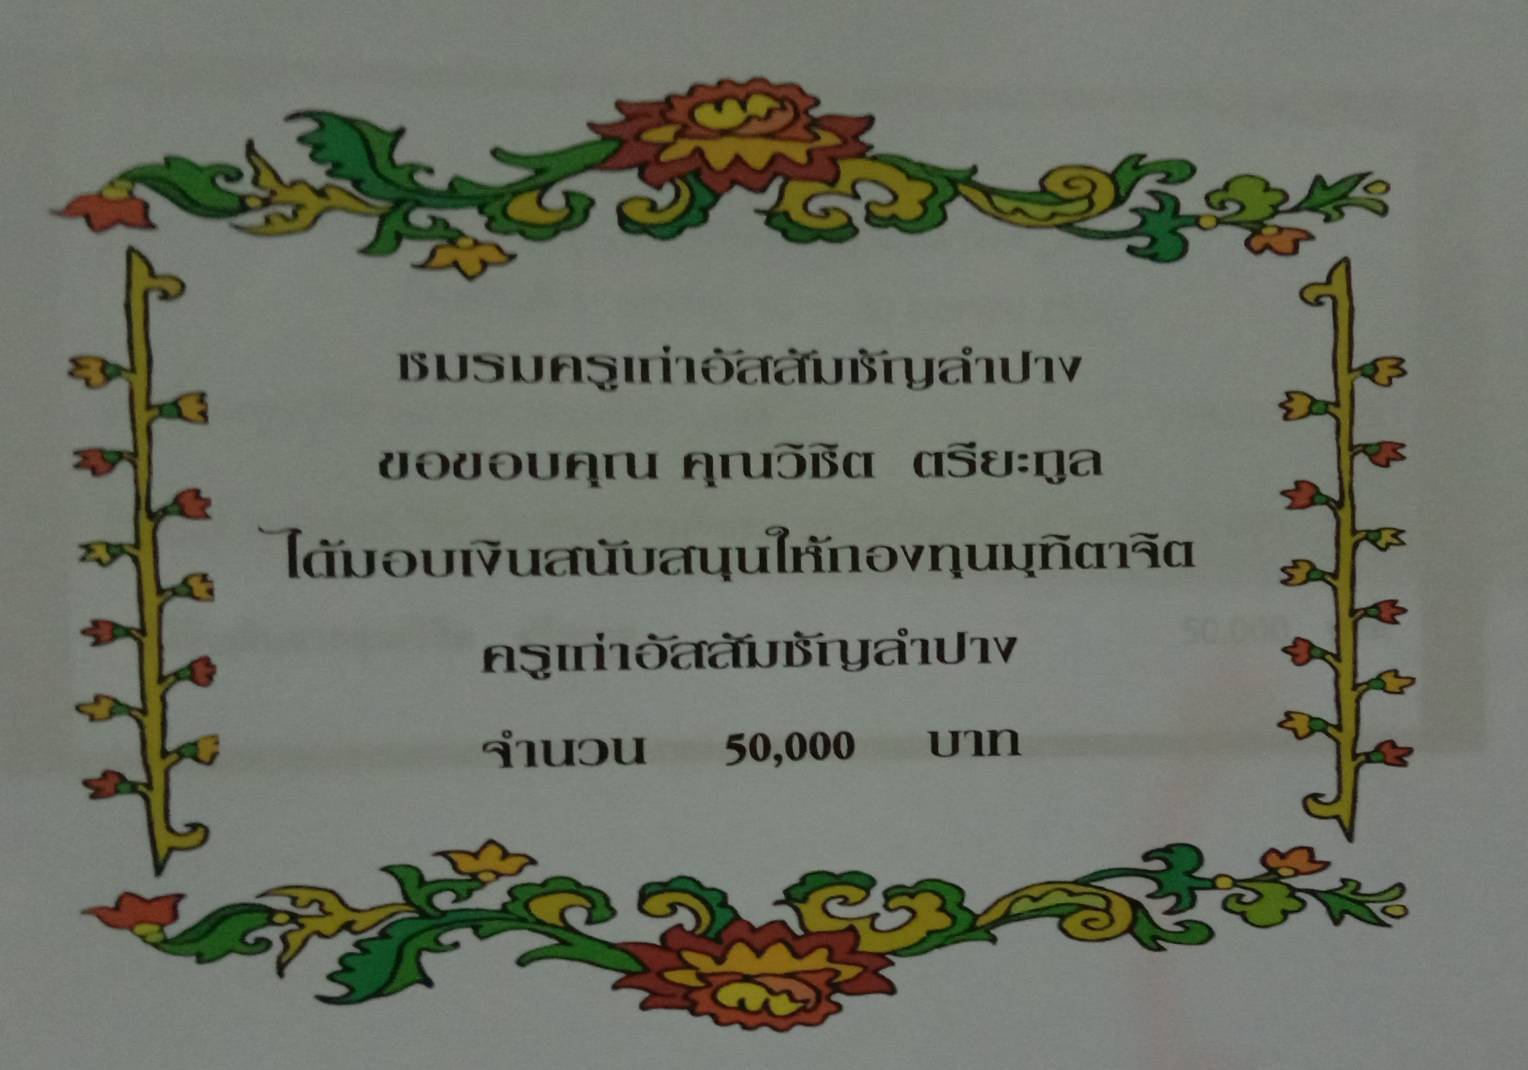 ชมรมครูเก่าอัสสัมชัญลำปาง
ขอขอบคุณ คุณวิชิต ตรียะกูล
ได้มอบเงินสนับสนุนให้กองทุนมุทิตาจิต
ครูเก่าอัสสัมชัญลำปาง
จำนวน 50,000 บาท